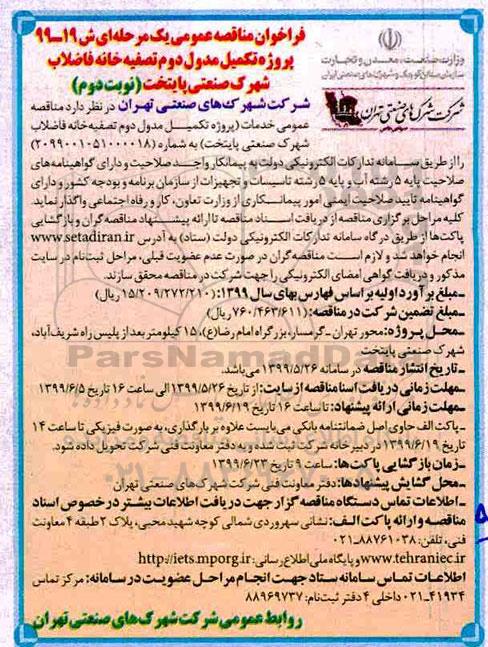 فراخوان مناقصه عمومی یک مرحله‌ای ش ۱۹-۹۹
پروژه تکمیل مدول دوم تصفیه خانه فاضلاب
شهرک صنعتی پایتخت (نوبت دوم)
وزارت صنعت، معدن و تجارت
سازمان صنایع کوچک و شهرکهای صنعتی ایران
شرکت شهرکهای صنعتی تهران
شرکت شهرک‌های صنعتی تهران در نظر دارد مناقصه
عمومی خدمات (پروژه تکمیل مدول دوم تصفیه خانه فاضلاب
شهرک صنعتی پایتخت) به شماره (۲۰۹۹۰۰۱۰۵۱۰۰۰۰۱۸)
را از طریق سامانه تدارکات الکترونیکی دولت به پیمانکار واجد صلاحیت و دارای گواهینامه‌های
صلاحیت پایه ۵ رشته آب و پایه ۵ رشته تاسیسات و تجهیزات از سازمان برنامه و بودجه کشور و دارای
گواهینامه تایید صلاحیت ایمنی امور پیمانکاری از وزارت تعاون، کار و رفاه اجتماعی واگذار نماید.
کلیه مراحل برگزاری مناقصه از دریافت اسناد مناقصه تا ارائه پیشنهاد مناقصه گران و بازگشایی
پاکت‌ها از طریق درگاه سامانه تدارکات الکترونیکی دولت (ستاد) به آدرس www.setadiran.ir
انجام خواهد شد و لازم است مناقصه گران در صورت عدم عضویت قبلی، مراحل ثبت‌نام در سایت
مذکور و دریافت گواهی امضای الکترونیکی را جهت شرکت در مناقصه محقق سازند.
ـ مبلغ برآورد اولیه بر اساس فهارس بهای سال ۱۳۹۹: (۱۵/۲۰۹/۲۷۲/۲۱۰ ریال)
ـ مبلغ تضمین شرکت در مناقصه: (۷۶۰/۴۶۳/۶۱۱ ریال)
ـ محل پروژه: محور تهران ـ گرمسار، بزرگراه امام رضا(ع)، ۱۵ کیلومتر بعد از پلیس راه شریف‌آباد،
شهرک صنعتی پایتخت
ـ تاریخ انتشار مناقصه در سامانه ۱۳۹۹/۵/۲۶ می‌باشد.
ـ مهلت زمانی دریافت اسنا مناقصه از سایت: از تاریخ ۱۳۹۹/۵/۲۶ الی ساعت ۱۶ تاریخ ۱۳۹۹/۶/۵
ـ مهلت زمانی ارائه پیشنهاد: تا ساعت ۱۶ تاریخ ۱۳۹۹/۶/۱۹
ـ پاکت الف حاوی اصل ضمانتنامه بانکی می‌بایست علاوه بر بارگذاری، به صورت فیزیکی تا ساعت ۱۴
تاریخ ۱۳۹۹/۶/۱۹ در دبیرخانه شرکت ثبت شده و به دفتر معاونت فنی شرکت تحویل داده شود.
ـ زمان بازگشایی پاکت‌ها: ساعت ۹ تاریخ ۱۳۹۹/۶/۲۳
ـ محل گشایش پیشنهادها: دفتر معاونت فنی شرکت شهرک‌های صنعتی تهران
ـ اطلاعات تماس دستگاه مناقصه گزار جهت دریافت اطلاعات بیشتر در خصوص اسناد
مناقصه و ارائه پاکت الف: نشانی سهروردی شمالی کوچه شهید محبی، پلاک ۲ طبقه ۴ معاونت
فنی، تلفن: ۸۸۷۶۱۰۳۸-۰۲۱
www.tehraniec.ir و پایگاه ملی اطلاع رسانی: http://iets.mporg.ir
اطلاعات تماس سامانه ستاد جهت انجام مراحل عضویت در سامانه: مرکز تماس
۴۱۹۳۴-۰۲۱ داخلی ۴ دفتر ثبت‌نام: ۸۸۹۶۹۷۳۷
روابط عمومی شرکت شهرک‌های صنعتی تهران
ParsNamadData